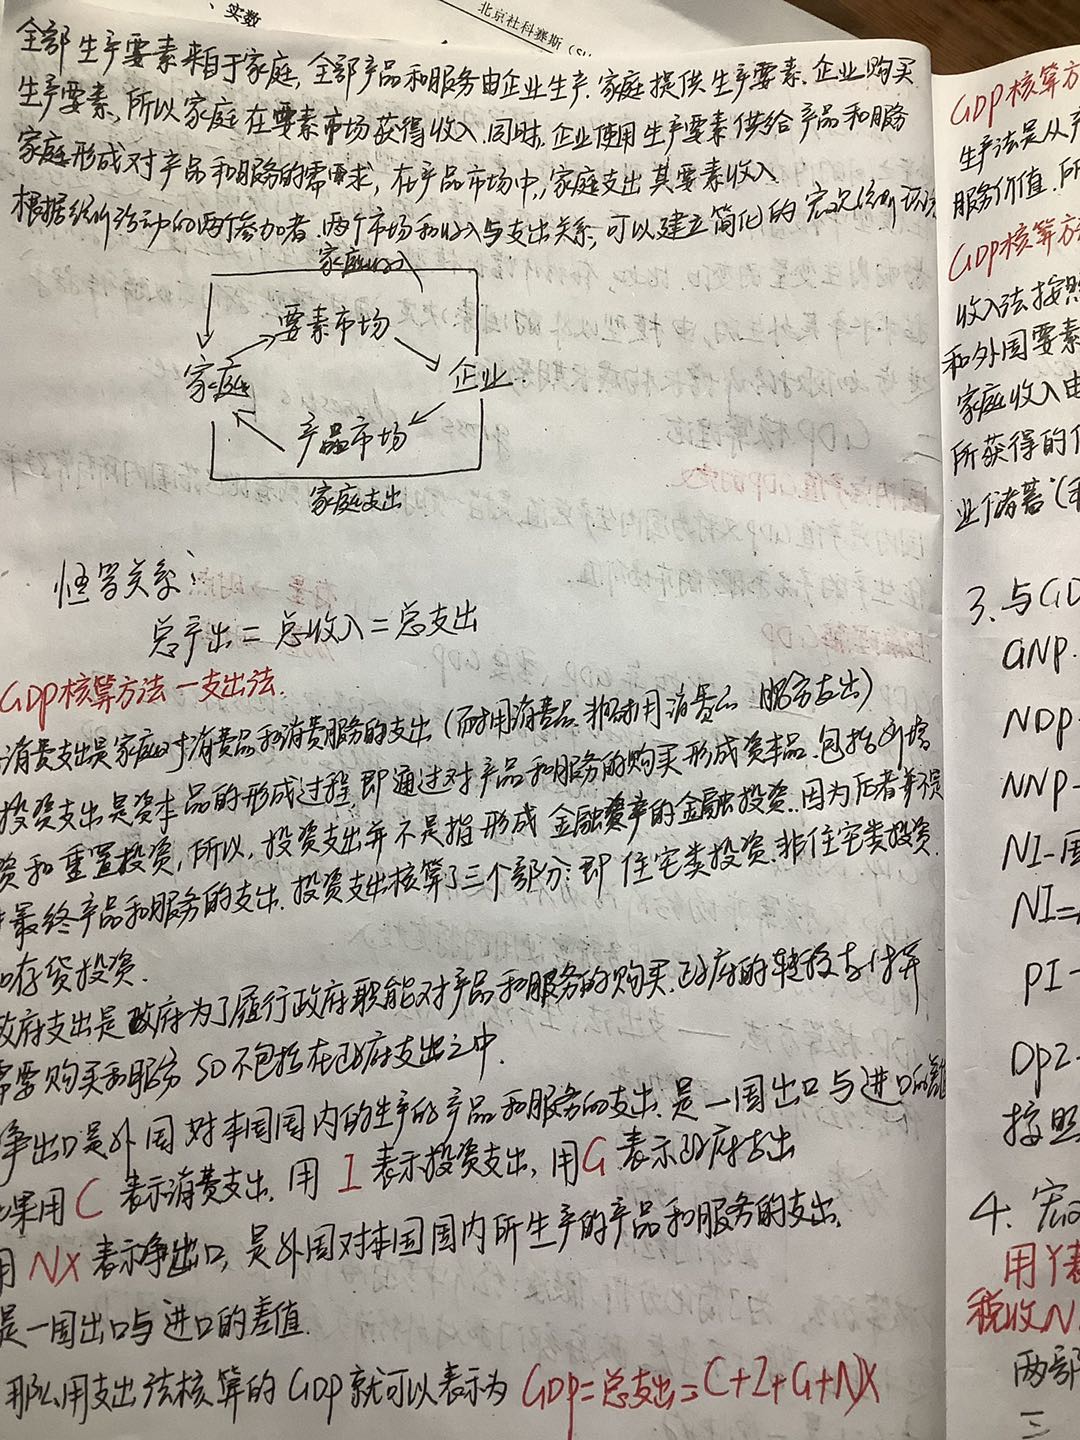 实数
北京社科赛斯(
全部生产要素来自于家庭,全部产品和服务由企业生产.家庭提供生产要素.企业购买
生产要素,所以家庭在要素市场获得收入.同时,企业使用生产要素供给产品和服务
家庭形成对产品和服务的需求,在产品市场中,家庭支出其要素收入
根据经济活动的两个参加者.两个市场和收入与支出关系,可以建立简化的宏观经济环流
家庭收入
要素市场
家庭 企业
产品市场
家庭支出
恒等关系:
总产出=总收入=总支出
GDP核算方法一支出法.
消费支出是家庭对消费品和消费服务的支出(耐用消费品.非耐用消费品 服务支出)
投资支出是资本品的形成过程,即通过对产品和服务的购买形成资本品.包括净增
资和重置投资,所以,投资支出并不是指形成金融资产的金融投资.因为后者并不是
最终产品和服务的支出.投资支出核算了三个部分:即住宅类投资.非住宅类投资
和存货投资.
政府支出是政府为了履行政府职能对产品和服务的购买.政府的转移支付并
需要购买和服务 SO不包括在政府支出之中.
净出口是外国对本国国内的生产的产品和服务的支出.是一国出口与进口的差值
果用C表示消费支出.用I表示投资支出,用G表示政府支出
用NX表示净出口,是外国对本国国内所生产的产品和服务的支出.
是一国出口与进口的差值.
那么用支出法核算的GDP就可以表示为GDP=总支出=C+I+G+NX
GDP核算方
生产法是从产
服务价值.所
GDP核算方法
收入法按照
和外国要素
家庭收入由
所获得的
业储蓄(
3.与GD
GNP.
NDP-
NNP-
NI-国
NI=
PI-
DPI-
按照
4.宏
用Y表
税收N
两部
三